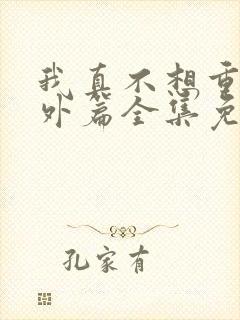 我真不想重
外篇全集免
孔家有